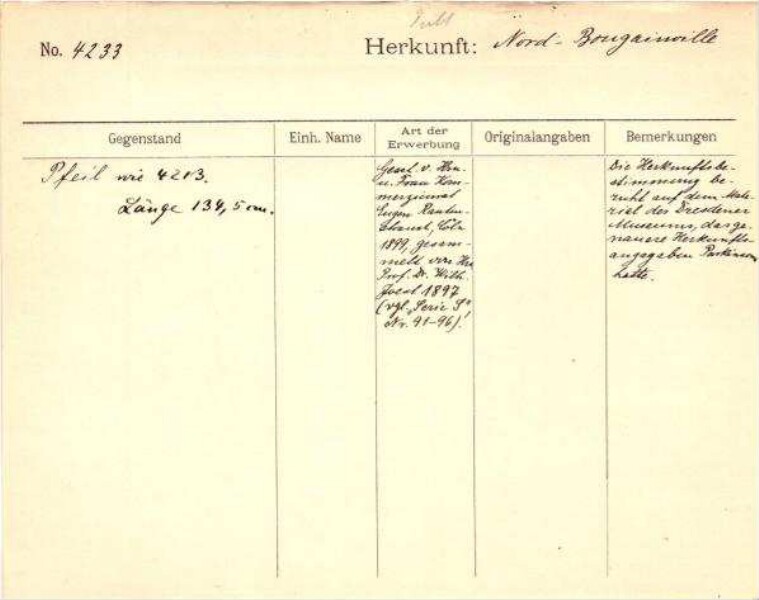 No. 4233
Herkunft: Nord-Bougainville
Gegenstand
Einh. Name
Art der
Erwerbung
Originalangaben
Bemerkungen
Pfeil wie 4213.
Länge 134,5 cm.
Gesch. v. Hrn.
u. Frau Kom-
merzienrat
Eugen Rauten-
strauch, Cöln
1899, gesam-
melt von Hrn
Prof. Dr. Wilh.
Joest 1897
(vgl. "Serie S"
Nr. 91-96)!
Die Herkunftsbe-
stimmung be-
ruht auf dem Mate-
rial des Dresdener
Museums, das ge-
nauere Herkunfts-
angaben Parkinsons
hatte.